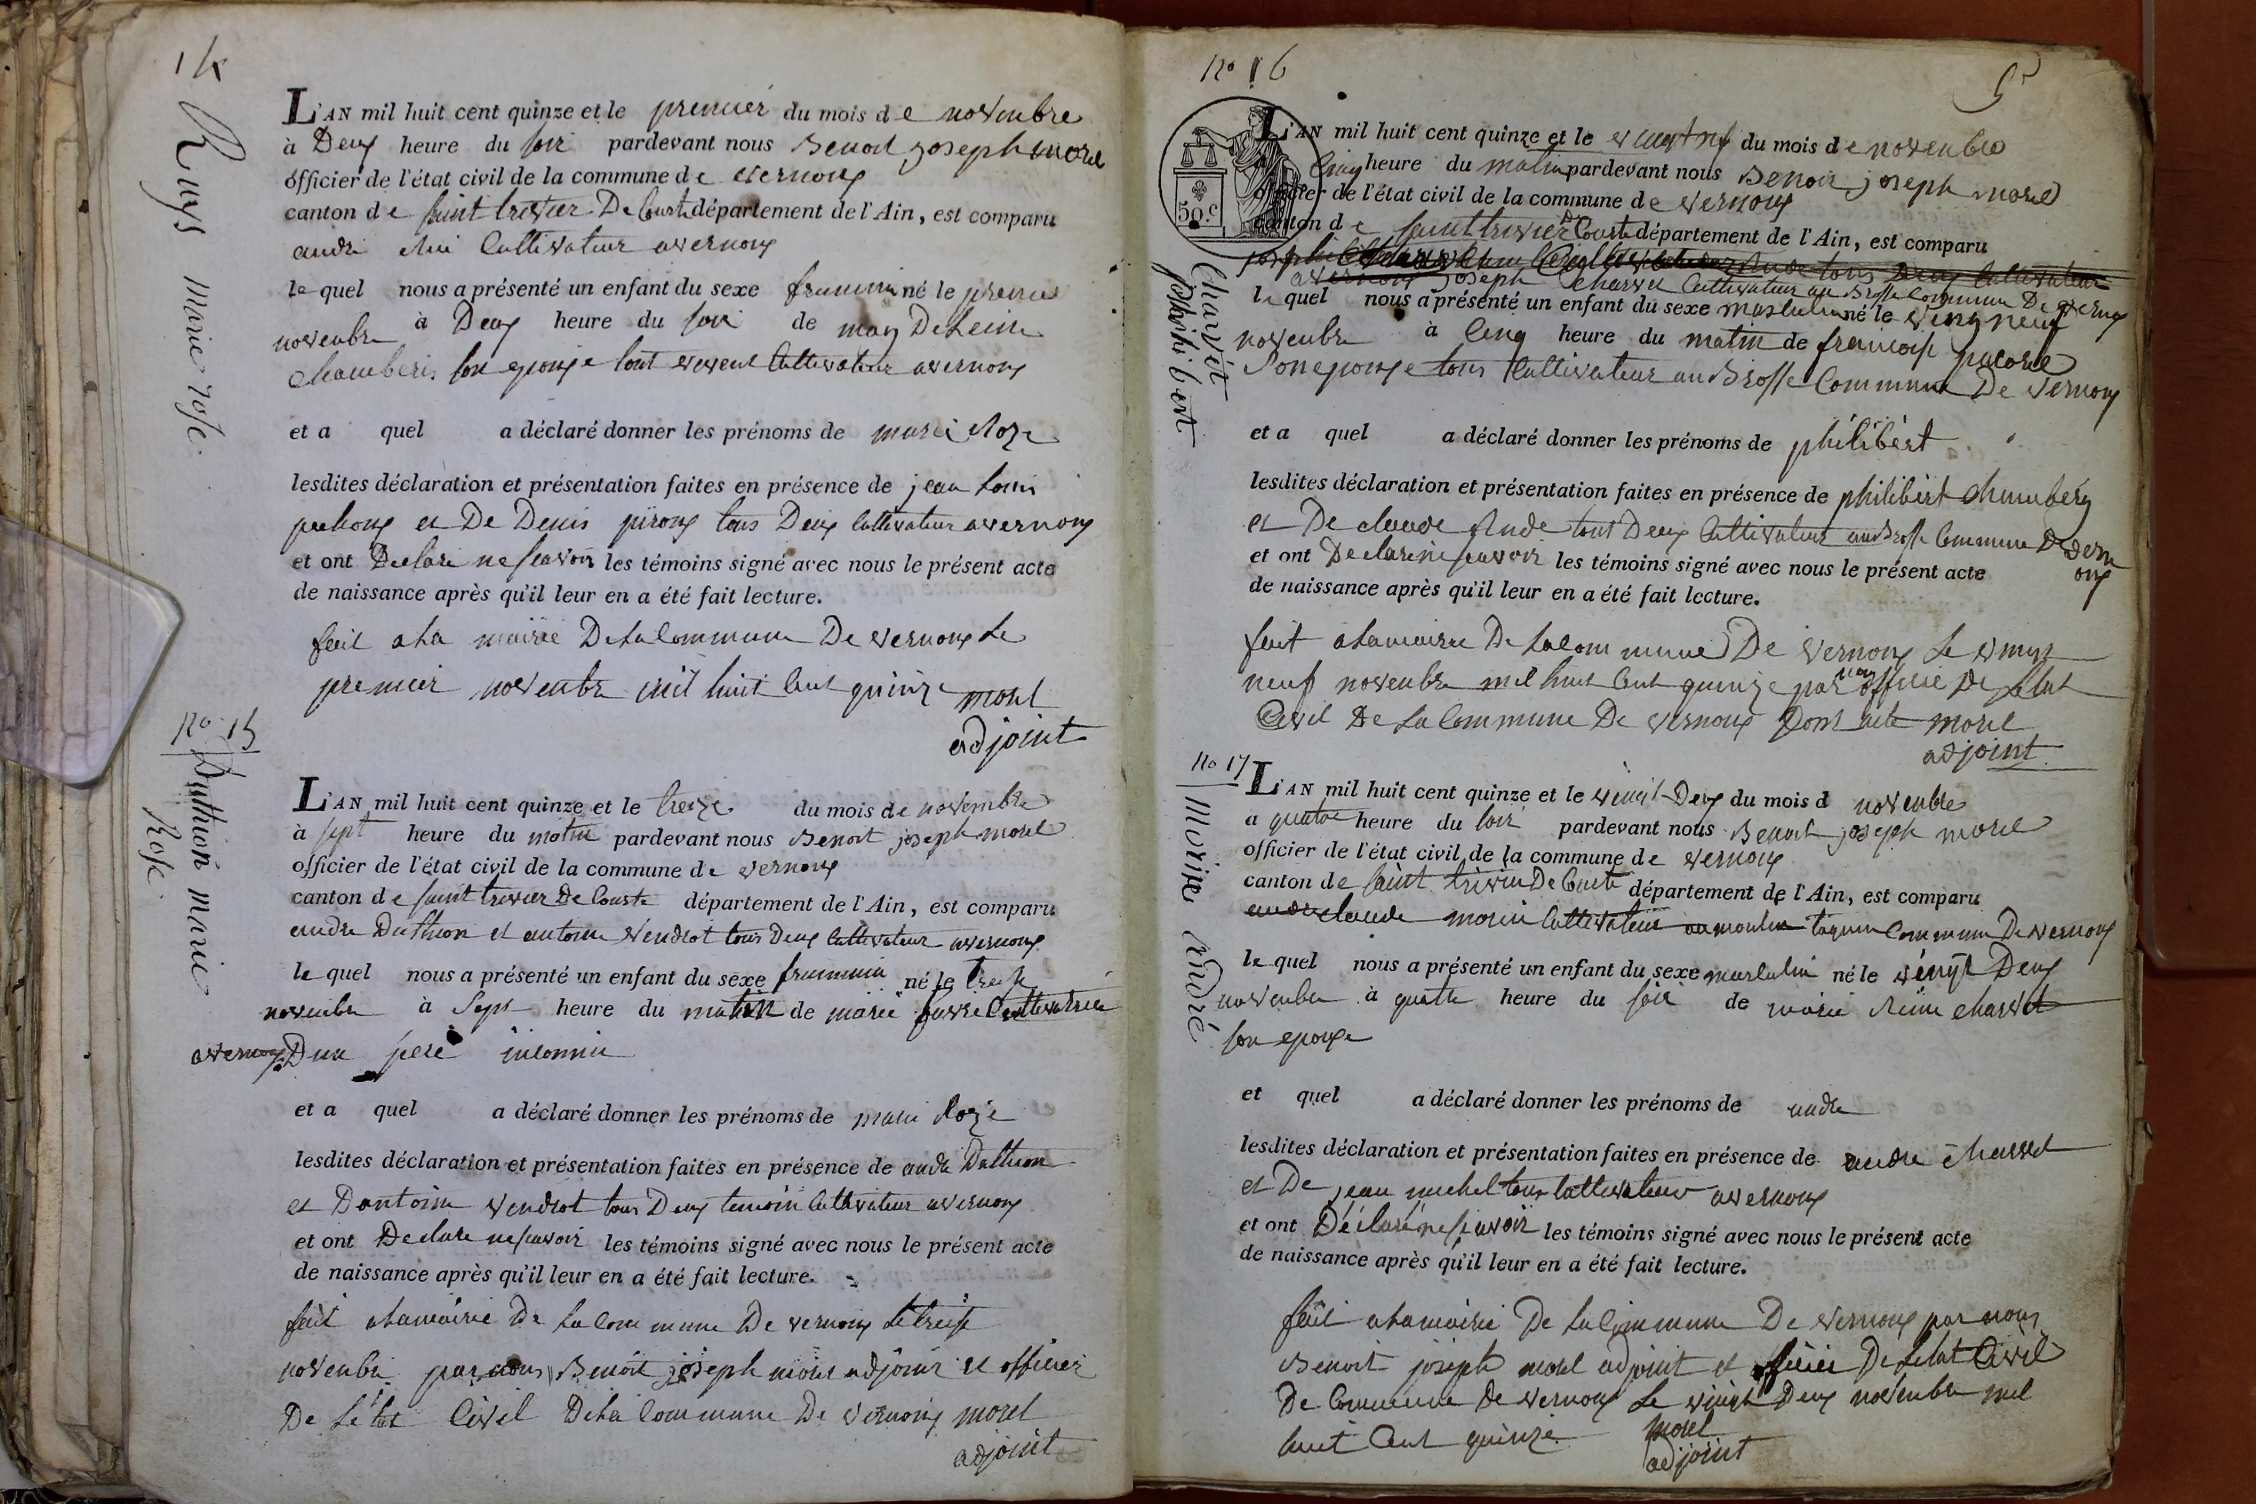 14
Ruys marie rose
L'AN mil huit cent quinze et le premier du mois de novembre
à Deux heure du soir pardevant nous Benoit joseph morel
officier de l'état civil de la commune de vernoux
canton de saint trivier De Courte département de l'Ain, est comparu
andré Cultivateur avernoux
le quel nous a présenté un enfant du sexe feminin né le premier
novembre à Deux heure du soir de
son epouse tout Cultivateur avernoux
et a quel a déclaré donner les prénoms de marie Roze
lesdites déclaration et présentation faites en présence de jean Louis
et De Denis piroux tous Deux Cultivateur avernoux
et ont Declaré ne scavoir les témoins signé avec nous le présent acte
de naissance après qu'il leur en a été fait lecture.
fait a La mairie De La Commune De vernoux Le
premier novembre mil huit Cent quinze morel
adjoint
no 15
Duthion marie
Rose
L'AN mil huit cent quinze et le treize du mois de novembre
à sept heure du matin pardevant nous Benoit joseph morel
officier de l'état civil de la commune de vernoux
canton de saint trivier De Courte département de l'Ain, est comparu
andré Duthion et antoine vendrot tous Deux Cultivateur avernoux
le quel nous a présenté un enfant du sexe feminin né le treize
novembre à Sept heure du matin de marie favre Cultivatrice
avernoux Dun pere inconnu
et a quel a déclaré donner les prénoms de marie Roze
lesdites déclaration et présentation faites en présence de andré Duthion
et Dantoine vendrot tous Deux temoin Cultivateur avernoux
et ont Declaré ne scavoir les témoins signé avec nous le présent acte
de naissance après qu'il leur en a été fait lecture.
fait a La mairie De La Commune De vernoux Le treize
novembre par nous Benoit joseph morel adjoint et officier
De Létat Civil De La Commune De vernoux morel
adjoint
no 16
50.c
Charvet
philibert
L'AN mil huit cent quinze et le vingt neuf du mois de novembre
Cinq heure du matin pardevant nous Benoit joseph morel
officier de l'état civil de la commune de vernoux
canton de saint trivier De Courte département de l'Ain, est comparu
avernoux joseph Charvet Cultivateur au Brosse Commune De vernoux
le quel nous a présenté un enfant du sexe masculin né le vingt neuf
novembre à Cinq heure du matin de francoise pacorel
Son epouse tous Cultivateur au Brosse Commune De vernoux
et a quel a déclaré donner les prénoms de philibert
lesdites déclaration et présentation faites en présence de philibert
et De claude Rude tout Deux Cultivateur au Brosse Commune De vernoux
et ont Declaré ne scavoir les témoins signé avec nous le présent acte
de naissance après qu'il leur en a été fait lecture.
fait a La mairie De La Commune De vernoux Le vingt
neuf novembre mil huit Cent quinze par nous officié De Létat
Civil De La Commune De vernoux Dont acte morel
adjoint
no 17
Morine André
L'AN mil huit cent quinze et le vingt Deux du mois d novembre
a quatre heure du soir pardevant nous Benoit joseph morel
officier de l'état civil de la commune de vernoux
canton de saint trivier De Courte département de l'Ain, est comparu
andre claude morin Cultivateur au moulin taquin Commune De vernoux
le quel nous a présenté un enfant du sexe masculin né le vingt Deux
novembre à quatre heure du soir de marie Reine charvet
son epouse
et quel a déclaré donner les prénoms de andre
lesdites déclaration et présentation faites en présence de andre
et De jean michel tous Cultivateur avernoux
et ont Déclaré ne scavoir les témoins signé avec nous le présent acte
de naissance après qu'il leur en a été fait lecture.
fait a La mairie De La Commune De vernoux par nous
Benoit joseph morel adjoint et officier De Létat Civil
De Commune De vernoux Le vingt Deux novembre mil
huit Cent quinze morel
adjoint